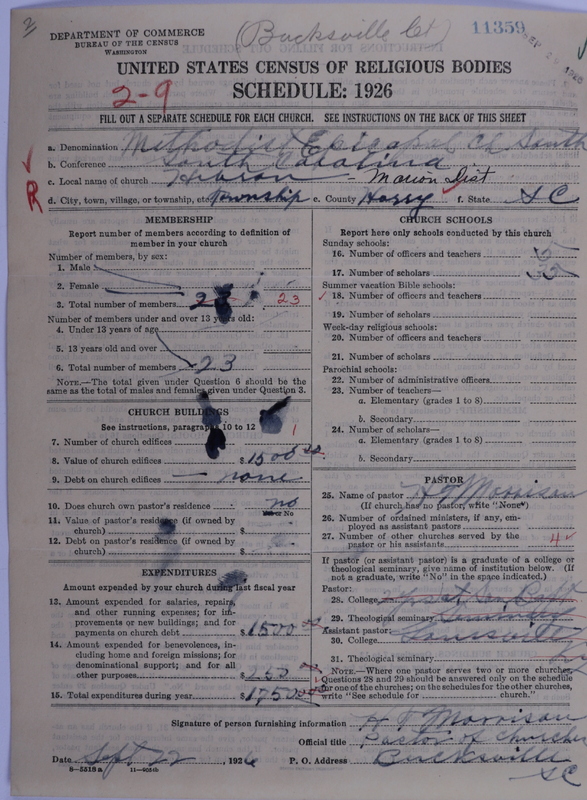 2
(Bucksville Ct)
11359
DEPARTMENT OF COMMERCE
BUREAU OF THE CENSUS
WASHINGTON
UNITED STATES CENSUS OF RELIGIOUS BODIES
SCHEDULE: 1926
2-9
FILL OUT A SEPARATE SCHEDULE FOR EACH CHURCH. SEE INSTRUCTIONS ON THE BACK OF THIS SHEET
a. Denomination Methodist Episcopal Ch South
b. Conference South Carolina
c. Local name of church Hebron - Marion Dist
R
d. City, town, village, or township, etc township e. County Horry f. State SC
MEMBERSHIP
Report number of members according to definition of member in your church
Number of members, by sex:
1. Male
2. Female
3. Total number of members 23 23
Number of members under and over 13 years old:
4. Under 13 years of age
5. 13 years old and over
6. Total number of members 23
NOTE.—The total given under Question 6 should be the same as the total of males and females given under Question 3.
CHURCH BUILDINGS
See instructions, paragraphs 10 to 12
7. Number of church edifices 1
8. Value of church edifices $ 1500
9. Debt on church edifices none
10. Does church own pastor's residence no
Yes or No
11. Value of pastor's residence (if owned by church) $
12. Debt on pastor's residence (if owned by church) $
EXPENDITURES
Amount expended by your church during last fiscal year
13. Amount expended for salaries, repairs, and other running expenses; for improvements or new buildings; and for payments on church debt $ 1500
14. Amount expended for benevolences, including home and foreign missions; for denominational support; and for all other purposes $ 250
15. Total expenditures during year $ 1750
CHURCH SCHOOLS
Report here only schools conducted by this church
Sunday schools:
16. Number of officers and teachers 5
17. Number of scholars 35
Summer vacation Bible schools:
18. Number of officers and teachers
19. Number of scholars
Week-day religious schools:
20. Number of officers and teachers
21. Number of scholars
Parochial schools:
22. Number of administrative officers
23. Number of teachers—
a. Elementary (grades 1 to 8)
b. Secondary
24. Number of scholars—
a. Elementary (grades 1 to 8)
b. Secondary
PASTOR
25. Name of pastor H T Morrison
(If church has no pastor, write "None")
26. Number of ordained ministers, if any, employed as assistant pastors
27. Number of other churches served by the pastor or his assistants 4
If pastor (or assistant pastor) is a graduate of a college or theological seminary, give name of institution below. (If not a graduate, write "No" in the space indicated.)
Pastor:
28. College
29. Theological seminary
Assistant pastor:
30. College
31. Theological seminary
NOTE.—Where one pastor serves two or more churches, Questions 28 and 29 should be answered only on the schedule for one of the churches; on the schedules for the other churches, write "See schedule for church."
Signature of person furnishing information H T Morrison
Official title Pastor of Churches
Date Sept 22, 1926 P. O. Address Bucksville SC
8-5518a 11-4051b